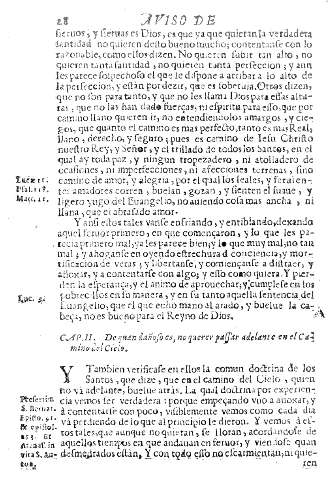 28 AVISO DE
sieruos, y sieruas es Dios, es que ya que quieran la verdadera
santidad no quieren desto bueno mucho; contentanse con lo
razonable, como ellos dizen. No quieren subir tan alto, no
quieren tanta santidad, no quieren tanta perfeccion; y aun
les parece sospechoso el que se dispone a arribar a lo alto de
la perfeccion, y estàn por dezir, que es soberuia. Otros dizen,
que no son para tanto, y que no les llama Dios para essas altu-
ras, que no las han dado fuerças, ni espiritu para esso, que por
camino llano quieren ir, no entendiendolos amargos, y cie-
gos, que quanto el camino es mas perfecto, tanto es mas Real,
llano, derecho, y seguro; pues es camino de Iesu Christo
nuestro Rey, y Señor, y el trillado de todos los Santos, en el
qual ay toda paz, y ningun tropezadero, ni atolladero de
ocasiones, ni imperfecciones, ni afecciones terrenas, sino
camino de amor, y alegria, por el qual los leales, y feruien-
tes amadores corren, buelan, gozan, y sienten el suaue, y
ligero yugo del Euangelio, no auiendo cosa mas ancha, ni
llana, que el abrasado amor.
Y ansi estos tales vanse enfriando, y entibiando, dexando
aquel feruor primero, en que começaron, y lo que les pa-
recia primero mal, ya les parece bien, y lo que muy mal, no tan
mal; y ahoganse en oyendo estrechura de conciencia, y mor-
tificacion de veras; y libertanse, y comiençanse a distraer, y
afloxar, y a contentarse con algo; y esso como quiera. Y pier-
den la esperança, y el animo de aprouechar, y cumplese en los
pobrecillos en su manera, y en su tanto aquella sentencia del
Euangelio, que el que echò mano al arado, y buelue la ca-
beça, no es bueno para el Reyno de Dios.
CAP. II. De quan dañoso es, no querer passar adelante en el Ca-
mino del Cielo.
Y Tambien verificase en ellos la comun doctrina de los
Santos, que dize, que en el camino del Cielo, quien
no và adelante, buelue atràs. La qual doctrina por experien-
cia vemos ser verdadera: porque empeçando vno a afloxar, y
à contentarse con poco, visiblemente vemos como cada dia
và perdiendo de lo que al principio le dieron. Y vemos à es-
tos tales, que aunque no quieran, se lloran, acordandose de
aquellos tiempos en que andauan en feruor, y viendose quan
desmedrados estàn, Y con todo esso no escarmientan, ni quie-
ren
Luc. 9.